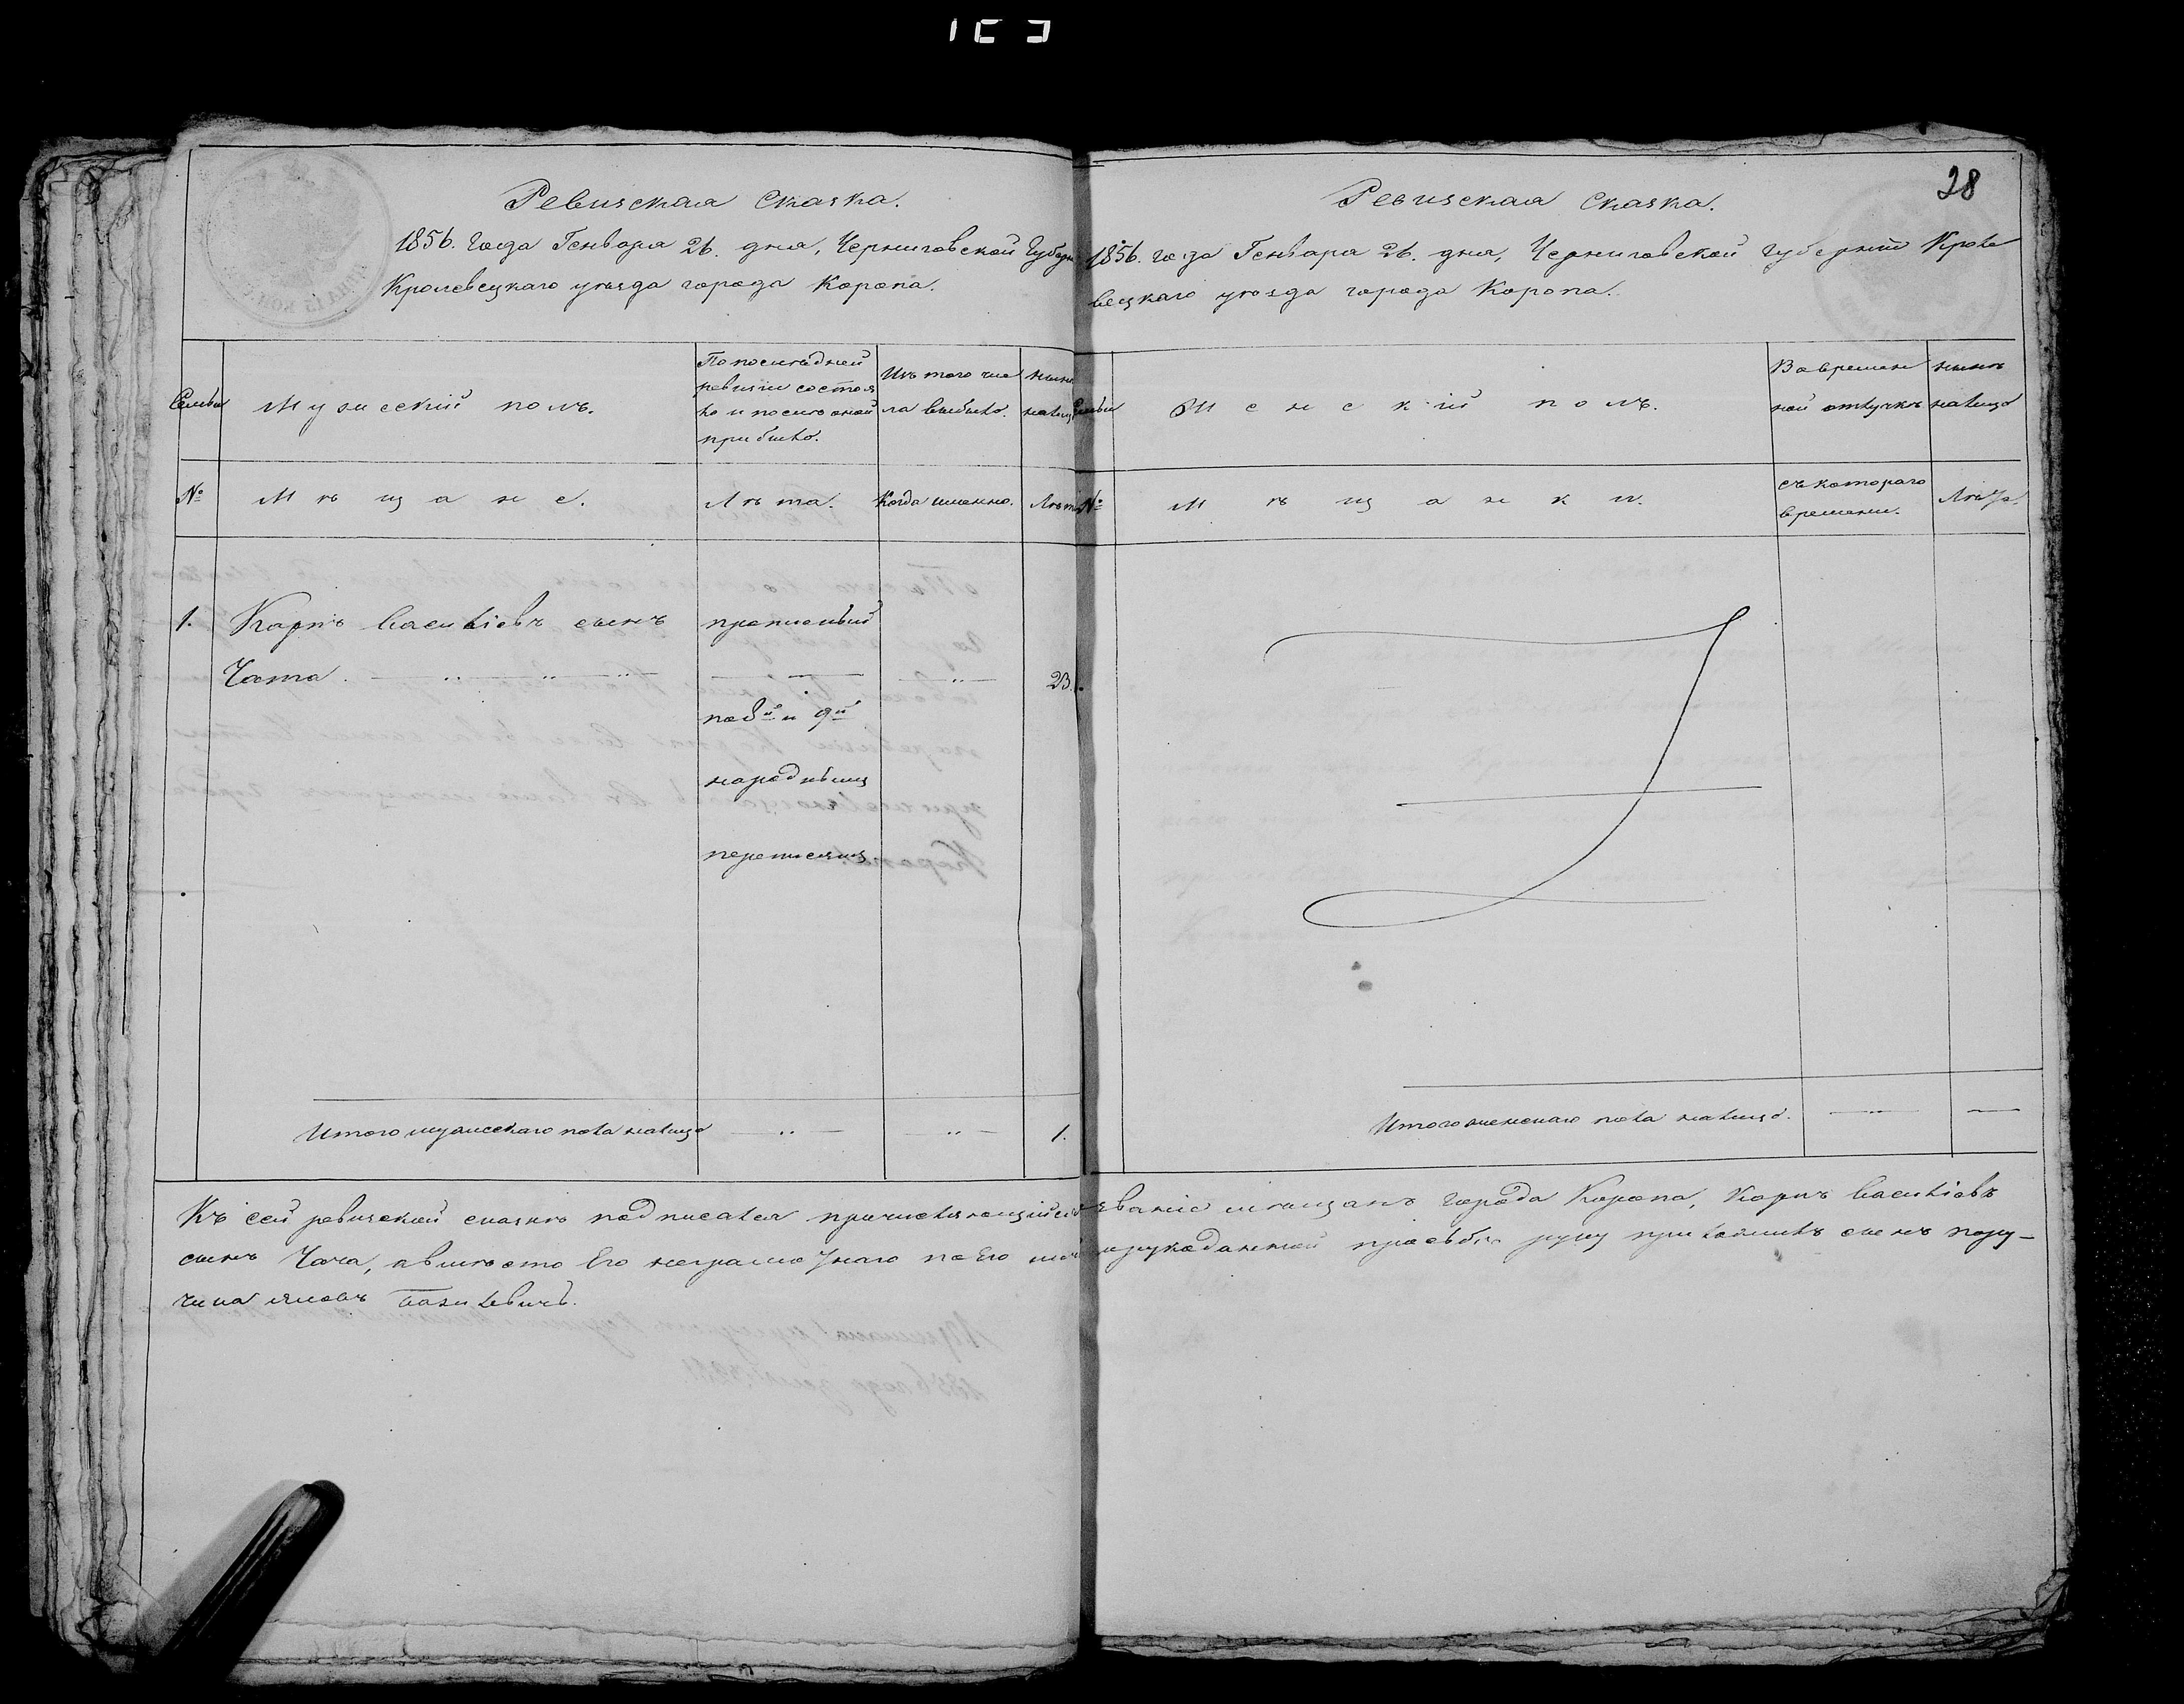 Ревизская Сказка.
1856. года Генваря 26. дня, Черниговской Губерн
Кролевецкаго уѣзда города Коропа.
Семьи
Мужескій полъ.
По послѣдней
ревизіи состоя
ло и послѣ оной
прибыло.
Изъ того чис
ла выбыло.
нынѣ
налиц
№
Мѣщане.
Лѣта.
Когда именно.
Лѣта
1.
Карпъ Васильевъ сынъ
Чата.
прописной
23.
по 8й и 9й
народнымъ
переписямъ
Итого мужескаго пола налицо
1.
28
Ревизская Сказка.
1856. года Генваря 26. дня, Черниговской губерніи Кроле
вецкаго уѣзда города Коропа.
Семьи
Женскій полъ.
Во времен
ной отлучкѣ
нынѣ
налицо
№
Мѣщанки.
съ котораго
времени.
Лѣта.
Итого женскаго пола налицо.
Къ сей ревизской сказкѣ подписался причисляющійся званіе мѣщанъ города Коропа, Карпъ Васильевъ
сынъ Чата, а вмѣсто Его неграмотнаго по Его рукоданной прозьбѣ руку приложилъ сынъ пору-
чика Базилевичъ.